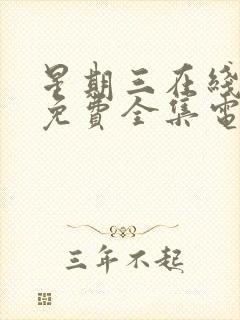 星期三在线
免費全集電
三年不起